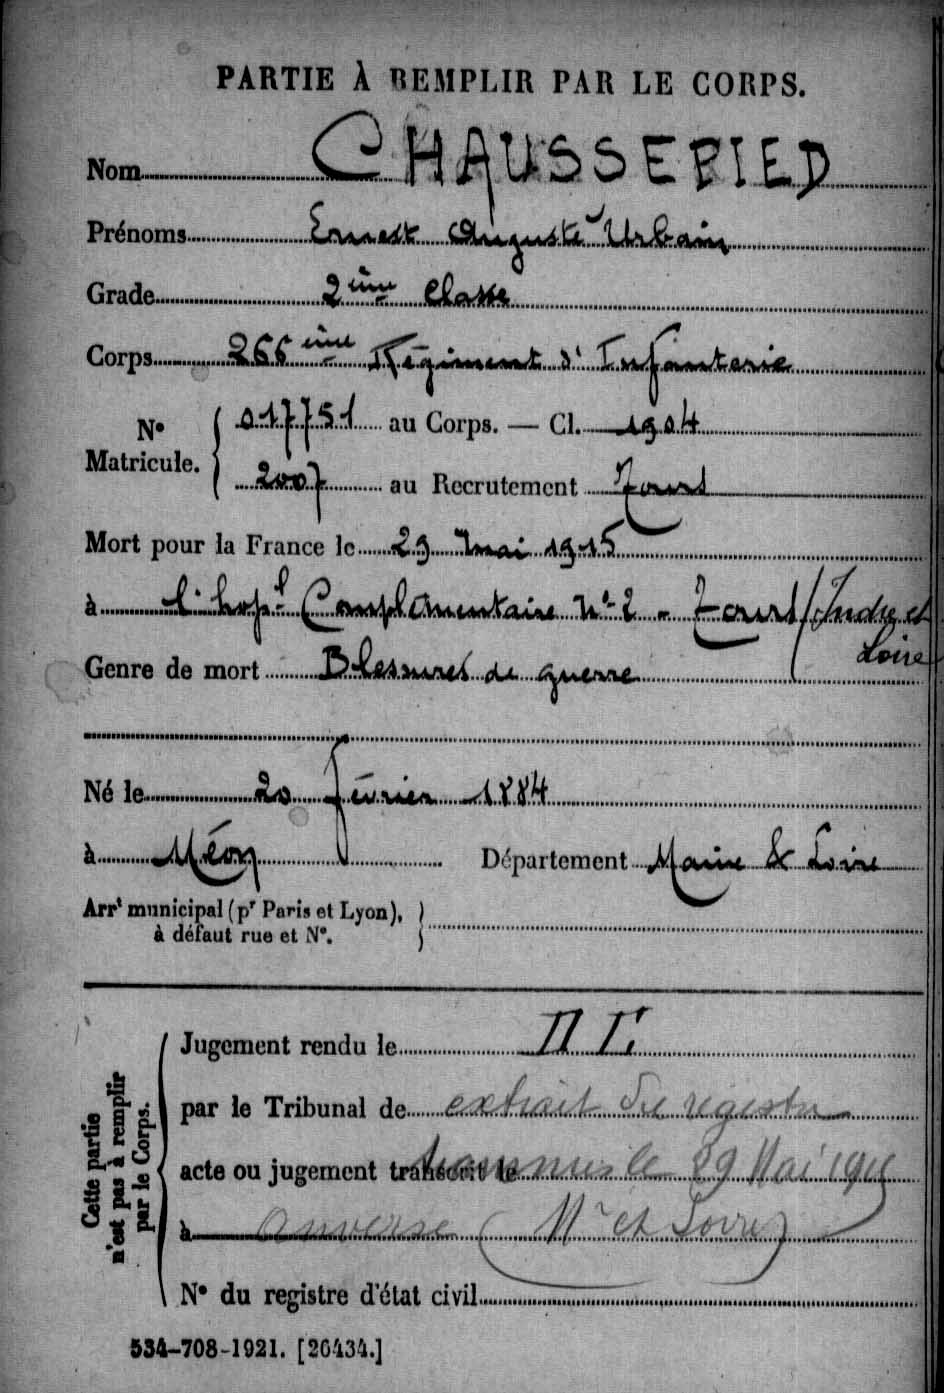 PARTIE À REMPLIR PAR LE CORPS.
Nom CHAUSSEPIED
Prénoms Ernest Auguste Urbain
Grade 2ème Classe
Corps 266ème Régiment d'Infanterie
N° Matricule. { 017751 au Corps. — Cl. 1904
2007 au Recrutement Tours
Mort pour la France le 29 Mai 1915
à l'hopl Complémentaire N°2 - Tours (Indre et
Loire
Genre de mort Blessures de guerre
Né le 20 février 1884
à Méon Département Maine & Loire
Arrt municipal (pr Paris et Lyon),
à défaut rue et N°.
Cette partie
n'est pas à remplir
par le Corps.
Jugement rendu le
par le Tribunal de extrait du registre
acte ou jugement transcrit le transmis le 29 Mai 1915
à (Mne et Loire)
N° du registre d'état civil
534-708-1921. [26434.]